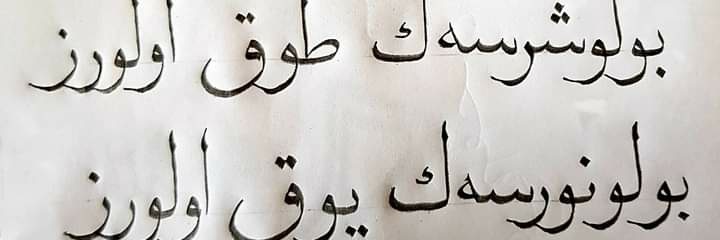 بولوشرسەك طوق اولورز
بولونورسەك يوق اولورز